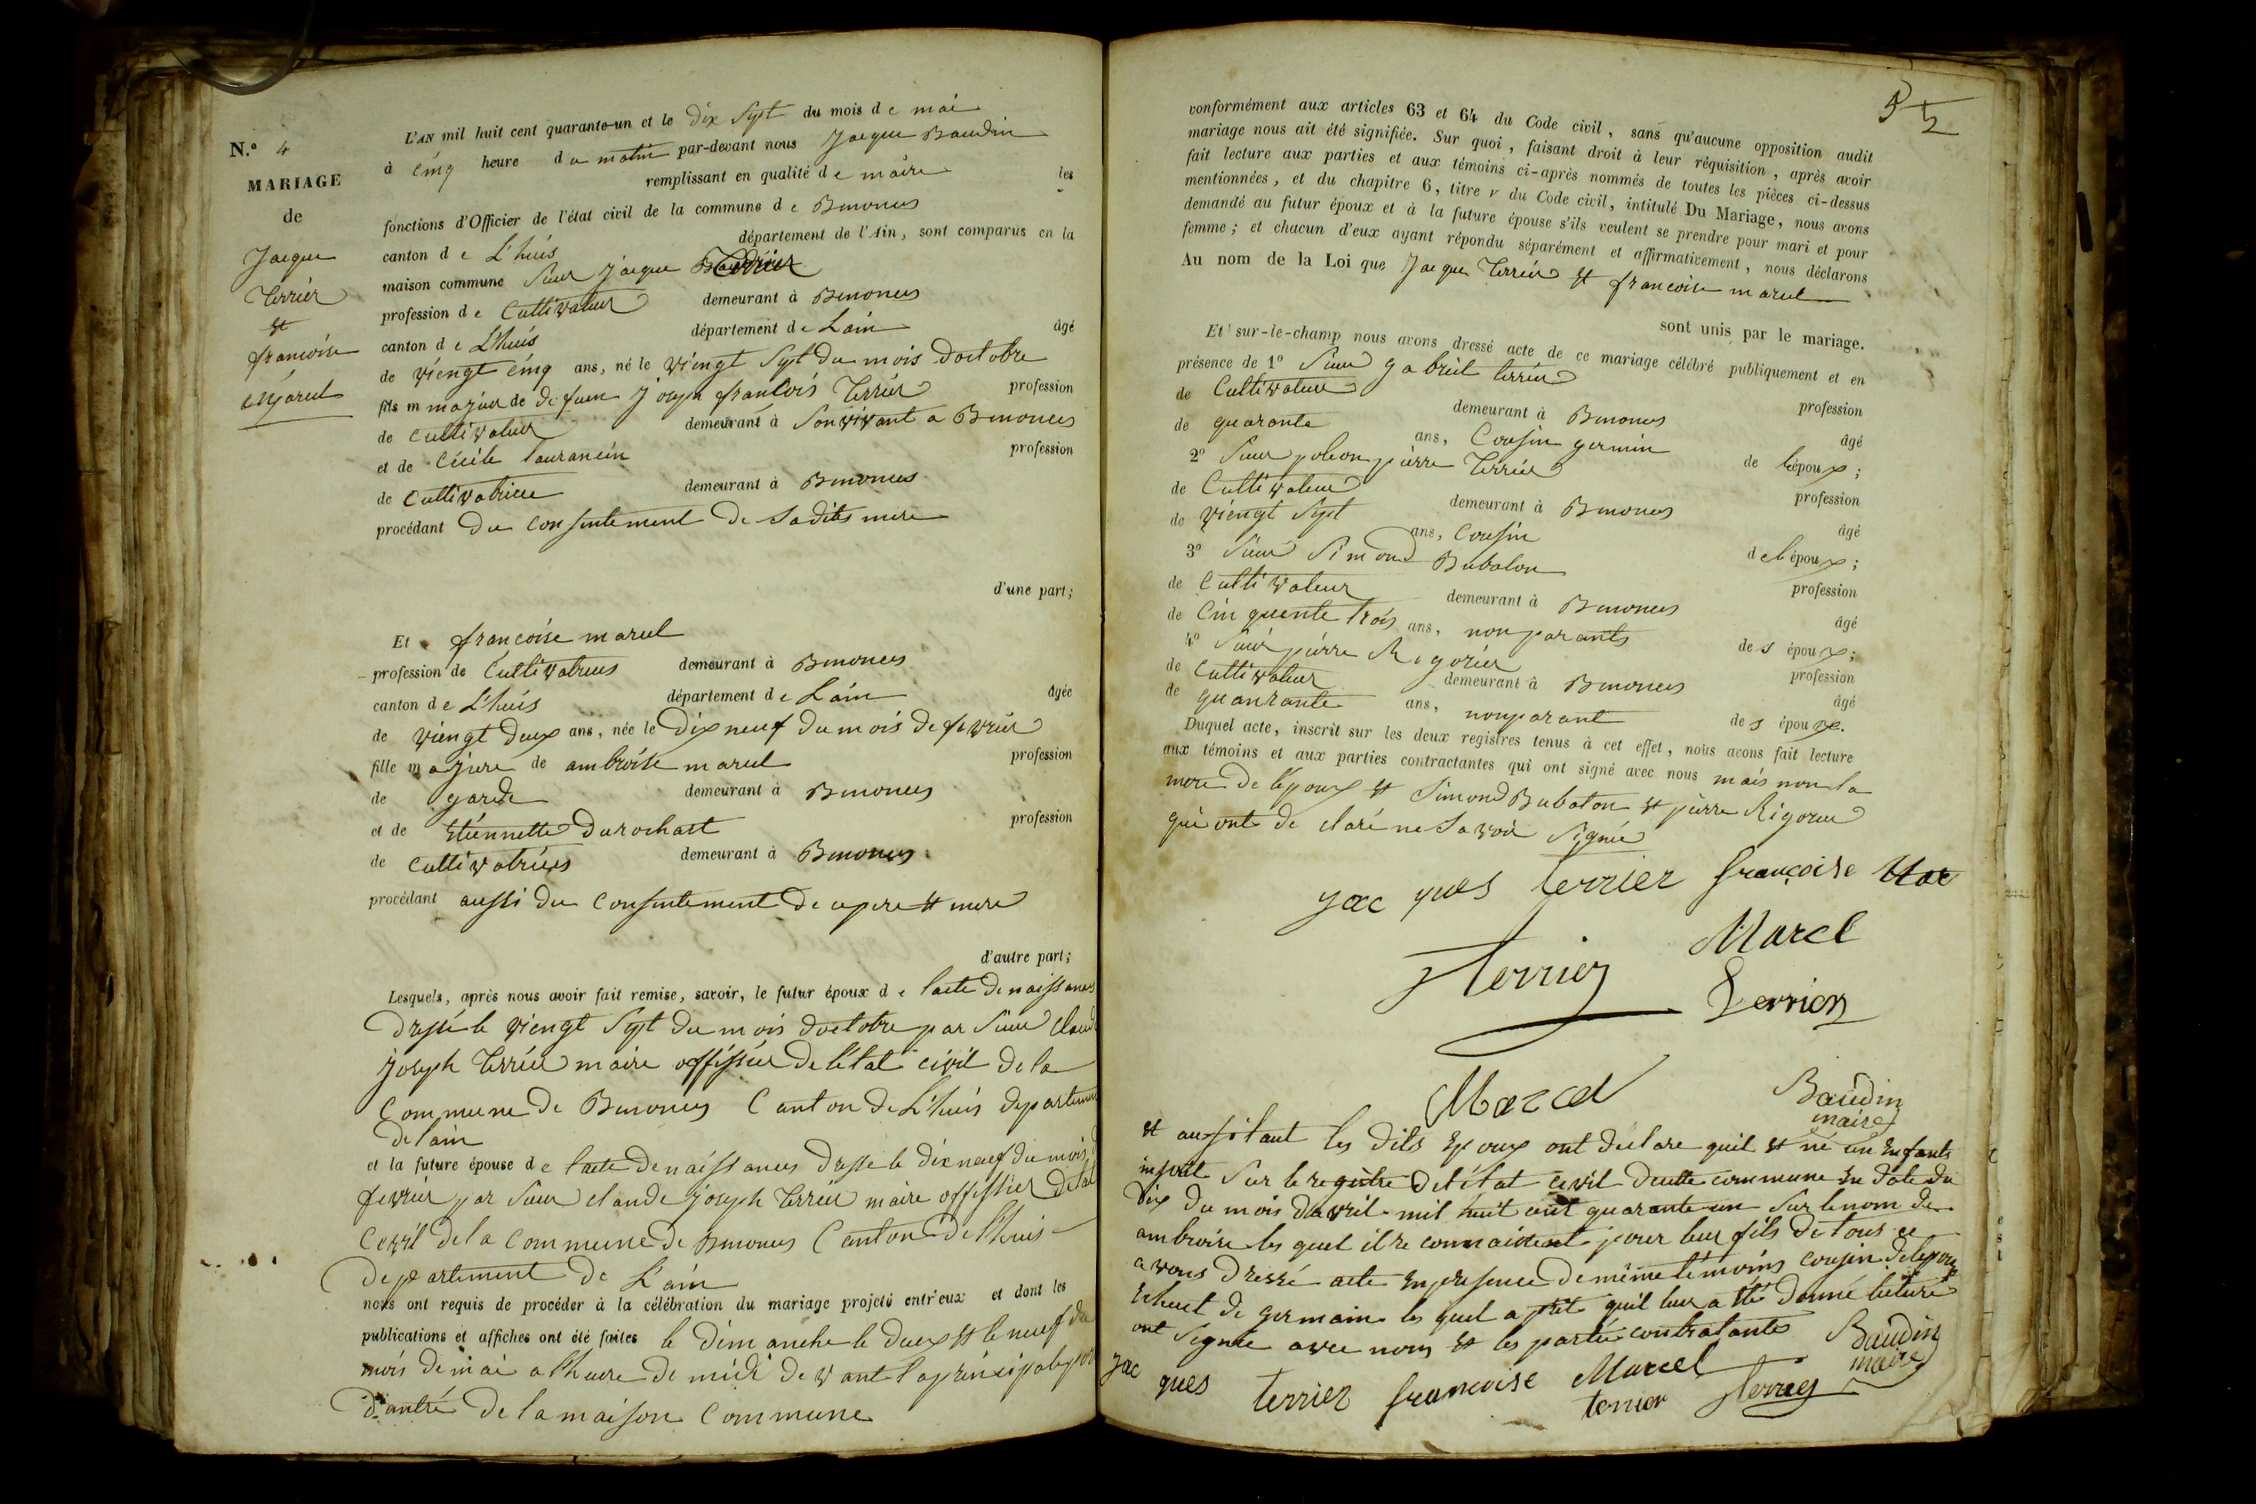 N.º 4
MARIAGE
de
Jacque
Terrier
et
francoise
Marcel
L'AN mil huit cent quarante-un et le dix Sept du mois de mai
à cinq heure du matin par-devant nous Jacque Baudin
remplissant en qualité de maire les
fonctions d'Officier de l'état civil de la commune de Benonces
canton de L'huis département de l'Ain, sont comparus en la
maison commune Sieur Jacque Terrier
profession de Cultivateur demeurant à Benonces
canton de L'huis département de Lain âgé
de viengt cinq ans, né le viengt Sept du mois doctobre
fils majeur de defuen Joseph francois Terrier profession
de cultivateur demeurant à Son vivant a Benonces
et de Cécile profession
de Cultivatrice demeurant à Benonces
procédant du consentement de Sadite mere
d'une part;
Et francoise marcel
profession de Cultivatrices demeurant à Benonces
canton de L'huis département de Lain âgée
de viengt deux ans, née le Dix neuf du mois de fevrier
fille majure de ambroise marcel profession
de garde demeurant à Benonces
et de Etiennette Durochat profession
de cultivatrices demeurant à Benonces
procédant aussi du consentement de cepere et mere
d'autre part;
Lesquels, après nous avoir fait remise, savoir, le futur époux de lacte de naissances
dressé le viengt Sept du mois doctobre par Sieur Claude
Joseph Terrier maire offissier de létat civil de la
Commune de Benonces Canton de L'huis departement
de lain
et la future épouse de lacte de naissances dresse le dix neuf du mois
fevrier par Sieur claude joseph Terrier maire offissier
Cevil de la commune de Benonces Canton de lhuis
departement de L'ain
nous ont requis de procéder à la célébration du mariage projeté entr'eux et dont les
publications et affiches ont été faites le dimanche le deux et le neuf du
mois de mai a lheure de midi devant la prinsipale porte
dantré de la maison Commune
conformément aux articles 63 et 64 du Code civil, sans qu'aucune opposition audit
mariage nous ait été signifiée. Sur quoi, faisant droit à leur réquisition, après avoir
fait lecture aux parties et aux témoins ci-après nommés de toutes les pièces ci-dessus
mentionnées, et du chapitre 6, titre v du Code civil, intitulé Du Mariage, nous avons
demandé au futur époux et à la future épouse s'ils veulent se prendre pour mari et pour
femme; et chacun d'eux ayant répondu séparément et affirmativement, nous déclarons
Au nom de la Loi que Jacque Terrier et francoise marcel
sont unis par le mariage.
Et sur-le-champ nous avons dressé acte de ce mariage célébré publiquement et en
présence de 1º Sieur gabriel terrier profession
de Cultivateur demeurant à Benonces âgé
de quarante ans, Cousin germin de lépoux;
2º Sieur poleon pierre Terrier profession
de Cultivateur demeurant à Benonces âgé
de viengt Sept ans, Cousin de lépoux;
3º Sieur Simond Babolon profession
de Cultivateur demeurant à Benonces âgé
de Cinquente trois ans, non parants des époux;
4º Sieur pierre Rigorier profession
de Cultivateur demeurant à Benonces âgé
de quanrante ans, non parant des époux.
Duquel acte, inscrit sur les deux registres tenus à cet effet, nous avons fait lecture
aux témoins et aux parties contractantes qui ont signé avec nous mais non la
mere de lépoux et Simond Babolon et pierre Rigorier
qui ont de claré ne Savoir Signée
yac ques terrier françoise Mar
Marcel
Terrier
Terrier
Marcel
Baudin
maire
et aussitaut les dits Epoux ont déclare quil est né un Enfants
inscrit Sur le registre de létat cevil deutte commune En date du
dix du mois davril mil huit cent quarante un Sur le nom de
ambroise les quel il reconnaitent pour leur fils de tous ce
avons dressé acte En presence de même témoins cousin de lepoux
de germain les quel a prêt quil leur a été donné lecture
ont Signée avec nous et les partie contratante
yac ques terrier françoise Marcel
terrier Terrier
Baudin
maire